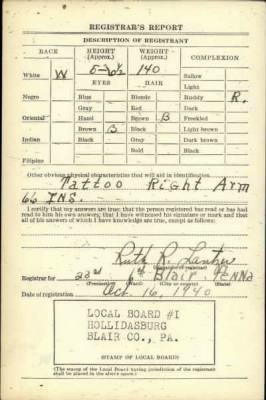 REGISTRAR'S REPORT
DESCRIPTION OF REGISTRANT
RACE HEIGHT (Approx.) WEIGHT (Approx.) COMPLEXION
White W 5-6½ 140 Sallow
EYES HAIR Light
Negro Blue Blonde Ruddy R.
Gray Red Dark
Oriental Hazel Brown B Freckled
Brown B Black Light brown
Indian Black Gray Dark brown
Bald Black
Filipino
Other obvious physical characteristics that will aid in identification
Tattoo Right Arm
I certify that my answers are true; that the person registered has read or has had
read to him his own answers; that I have witnessed his signature or mark and that
all of his answers of which I have knowledge are true, except as follows:
Ruth R.
Registrar for 22nd Blair Penna
(Precinct)
Date of registration Oct. 16, 1940
LOCAL BOARD #1
HOLLIDASBURG
BLAIR CO., PA.
(STAMP OF LOCAL BOARD)
(The stamp of the Local Board having jurisdiction of the registrant
shall be placed in the above space.)